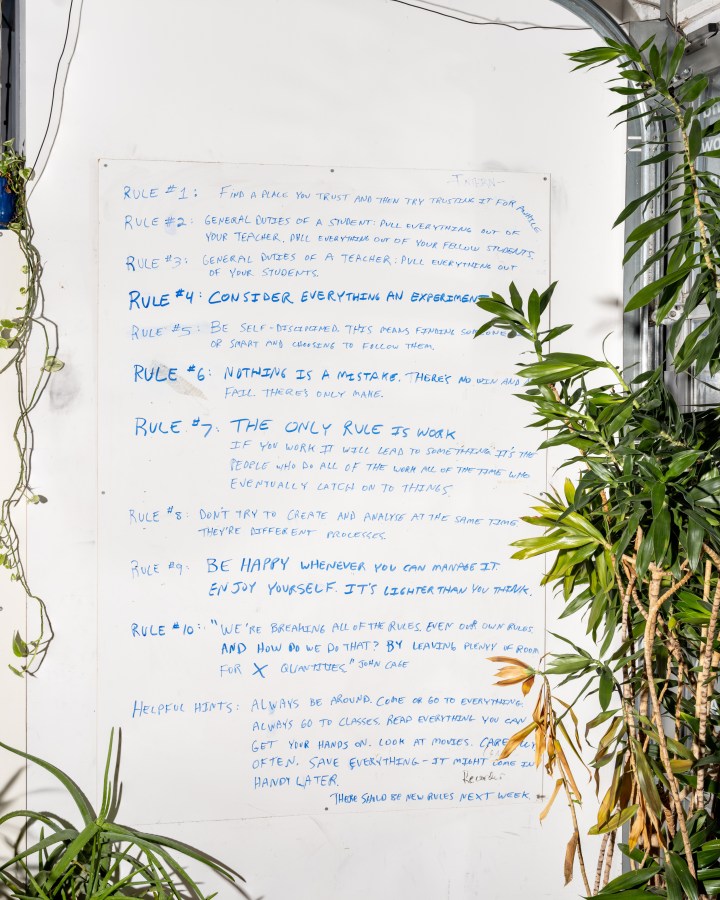 RULE #1: FIND A PLACE YOU TRUST AND THEN TRY TRUSTING IT FOR AWHILE
RULE #2: GENERAL DUTIES OF A STUDENT: PULL EVERYTHING OUT OF
YOUR TEACHER. PULL EVERYTHING OUT OF YOUR FELLOW STUDENTS.
RULE #3: GENERAL DUTIES OF A TEACHER: PULL EVERYTHING OUT
OF YOUR STUDENTS.
RULE #4: CONSIDER EVERYTHING AN EXPERIMENT
RULE #5: BE SELF-DISCIPLINED. THIS MEANS FINDING SOMEONE
OR SMART AND CHOOSING TO FOLLOW THEM
RULE #6: NOTHING IS A MISTAKE. THERE'S NO WIN AND
FAIL THERE'S ONLY MAKE.
RULE #7: THE ONLY RULE IS WORK
IF YOU WORK IT WILL LEAD TO SOMETHING IT'S THE
PEOPLE WHO DO ALL OF THE WORK ALL OF THE TIME WHO
EVENTUALLY LATCH ON TO THINGS.
RULE #8: DON'T TRY TO CREATE AND ANALYSE AT THE SAME TIME
THEY'RE DIFFERENT PROCESSES.
RULE #9: BE HAPPY WHENEVER YOU CAN MANAGE IT
ENJOY YOURSELF. IT'S LIGHTER THAN YOU THINK.
RULE #10: "WE'RE BREAKING ALL OF THE RULES. EVEN OUR OWN RULES
AND HOW DO WE DO THAT? BY LEAVING PLENTY OF ROOM
FOR X QUANTITIES." JOHN CAGE
HELPFUL HINTS: ALWAYS BE AROUND. COME OR GO TO EVERYTHING.
ALWAYS GO TO CLASSES. READ EVERYTHING YOU CAN
GET YOUR HANDS ON. LOOK AT MOVIES. CAREFULLY
OFTEN. SAVE EVERYTHING - IT MIGHT COME IN
HANDY LATER.
THERE SHOULD BE NEW RULES NEXT WEEK.